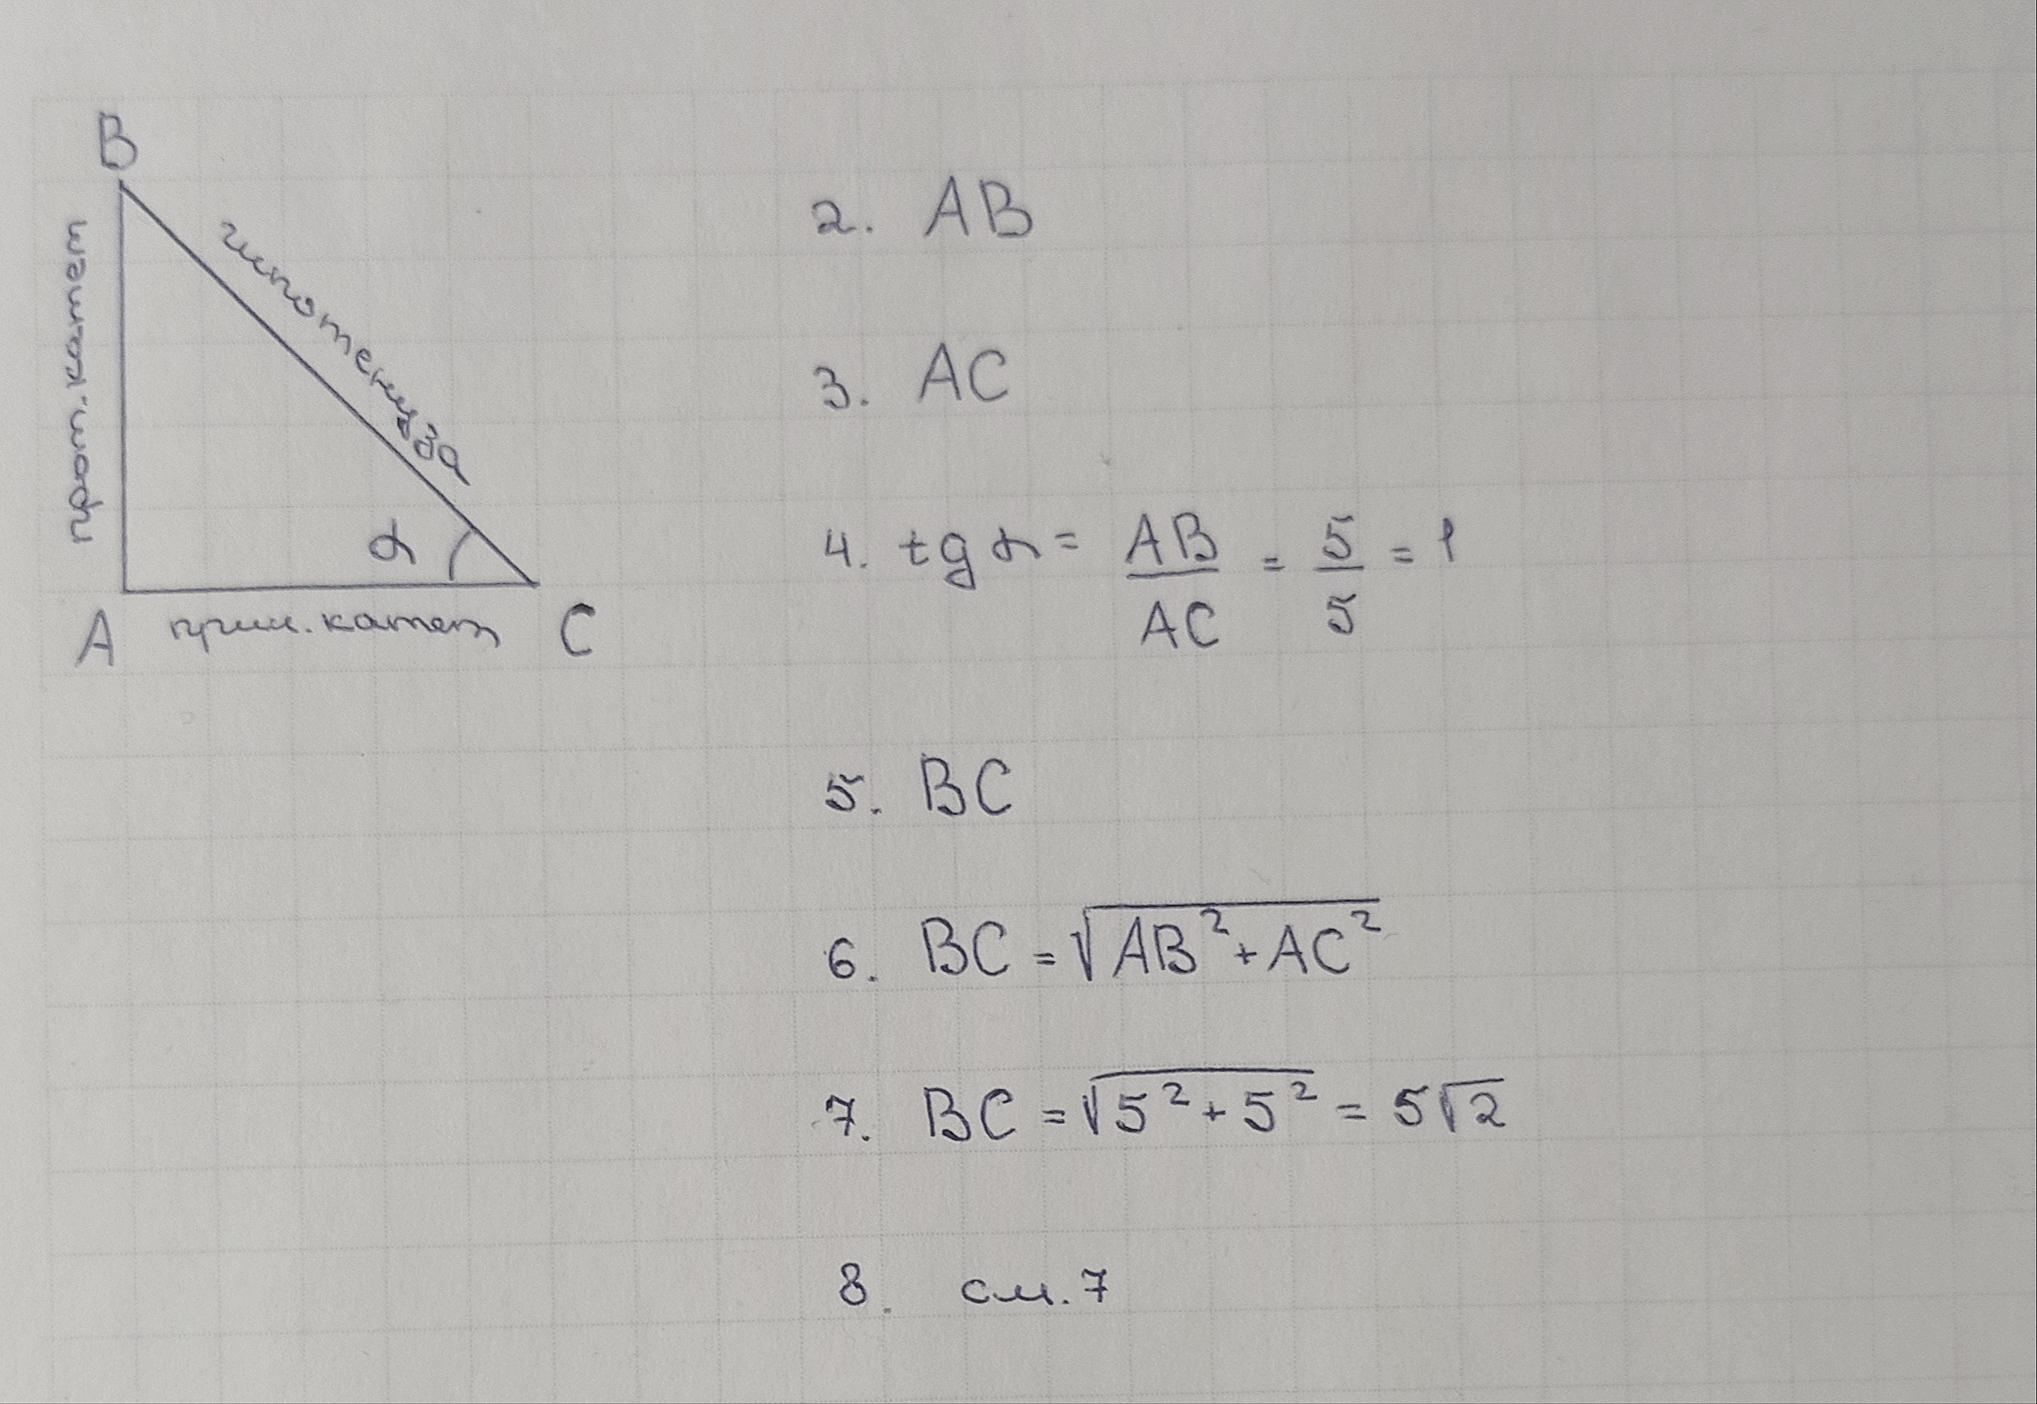 B
против. катет
гипотенуза
α
A прил. катет C
2. AB
3. AC
4. tg α = AB/AC = 5/5 = 1
5. BC
6. BC = √(AB² + AC²)
7. BC = √(5² + 5²) = 5√2
8. см. 7